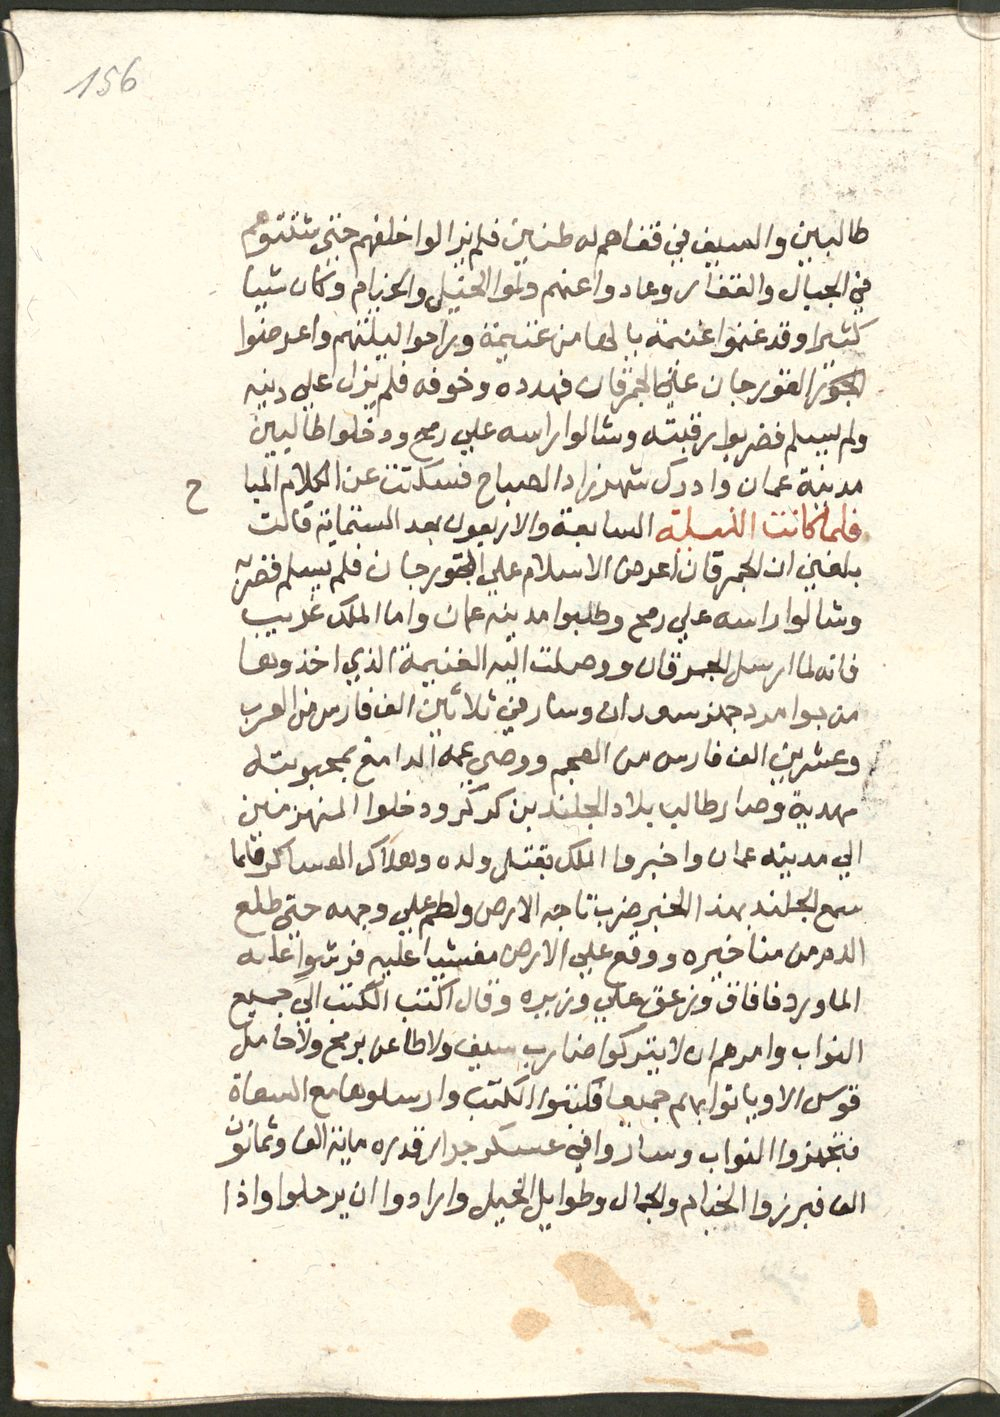 156
طالبين والسيف في قفاهم له طنين فلم يزالوا خلفهم حتي شتتوهم
في الجبال والقفار وعادوا عنهم ولموا الخيل والخيام وكان شيا
كثيرا وقد غنموا غنيمة يا لها من غنيمة وراحوا ليلتهم واعرضوا
القورجان علي الجمرقان فهدده وخوفه فلم يزل علي دينه
ولم يسلم فضربوا رقبته وشالوا راسه علي رمح ودخلوا طالبين
مدينة عمان وادرك شهرزاد الصباح فسكتت عن الكلام المبا
ح
فلما كانت الليلة السابعة والاربعون بعد الستماية قالت
بلغني ان الجمرقان اعرض الاسلام علي القورجان فلم يسلم فضربه
وشالوا راسه علي رمح وطلبوا مدينه عمان واما الملك غريب
فانه لما ارسل الجمرقان ووصلت اليه الغنيمة الذي اخذوها
من جوامرد جهز سعدان وسار في ثلاثين الف فارس من العرب
وعشرين الف فارس من العجم ووصي عمه الدامغ بمحبوبته
مهدية وصار طالب بلاد الجلند بن كركر ودخلوا المنهزمين
الي مدينه عمان واخبروا الملك بقتل ولده وهلاك العساكر فلما
سمع الجلند بهذا الخبر ضرب تاجه الارض ولطم علي وجهه حتي طلع
الدم من مناخيره ووقع علي الارض مغشيا عليه فرشوا عليه
الماورد فافاق وزعق علي وزيره وقال اكتب الكتب الي جميع
النواب وامرهم ان لا يتركوا ضارب سيف ولا طاعن برمح ولا حامل
قوس الا وياتوا بهم جميعا فكتبوا الكتب وارسلوها مع السعاة
فتجهزوا النواب وساروا في عسكر جرار قدره ماية الف وثمانون
الف فبرزوا الخيام والجمال وطوايل الخيل وارادوا ان يرحلوا واذا